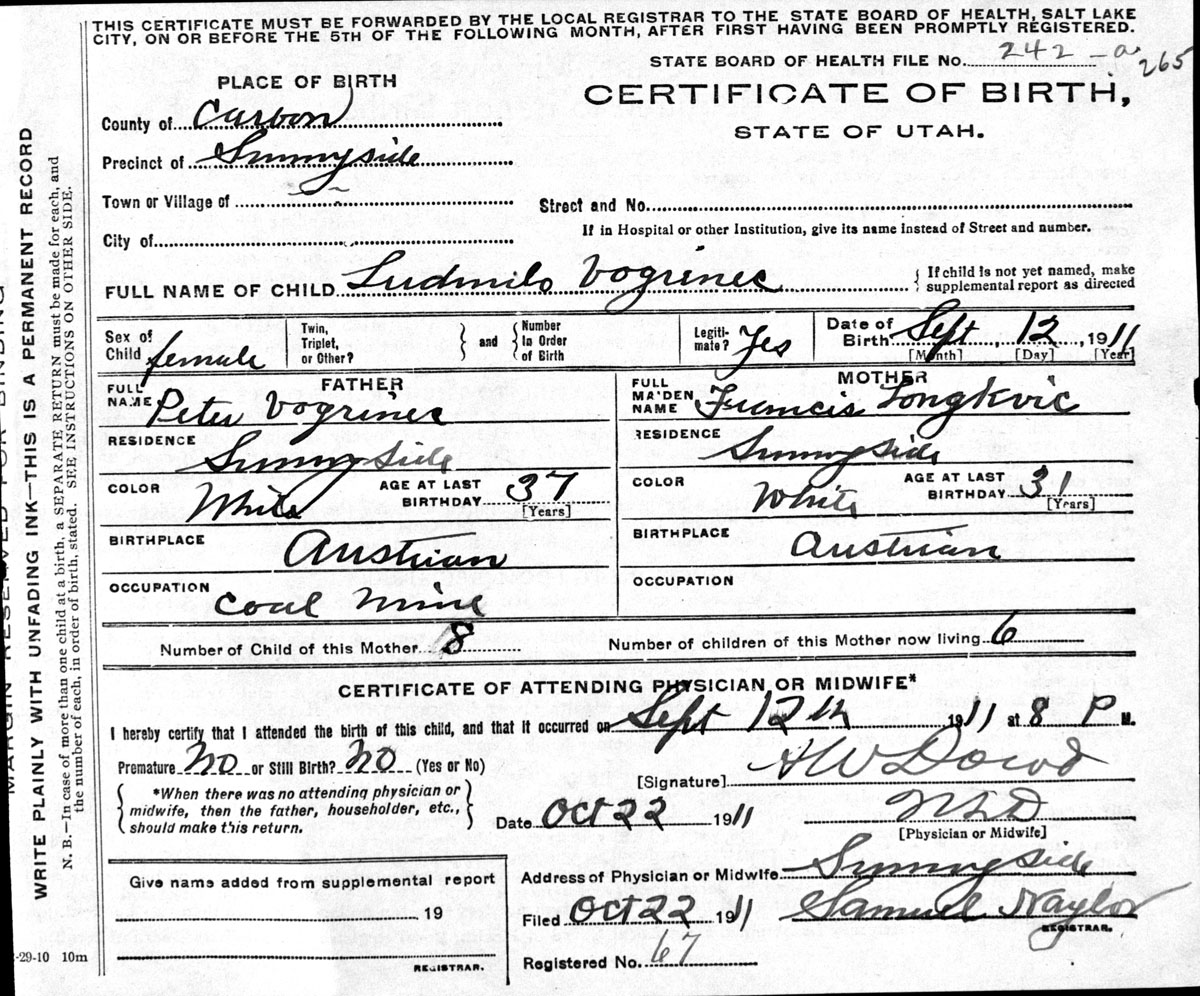 THIS CERTIFICATE MUST BE FORWARDED BY THE LOCAL REGISTRAR TO THE STATE BOARD OF HEALTH, SALT LAKE
CITY, ON OR BEFORE THE 5TH OF THE FOLLOWING MONTH, AFTER FIRST HAVING BEEN PROMPTLY REGISTERED.
STATE BOARD OF HEALTH FILE No. 242-a 265
PLACE OF BIRTH
CERTIFICATE OF BIRTH,
STATE OF UTAH.
County of Carbon
Precinct of Sunnyside
Town or Village of
Street and No.
City of
If in Hospital or other Institution, give its name instead of Street and number.
FULL NAME OF CHILD Ludmilo Vogrinec { If child is not yet named, make
supplemental report as directed
Sex of Child female
Twin, Triplet, or Other? } and { Number in Order of Birth
Legitimate? Yes
Date of Birth Sept 12, 1911
[Month] [Day] [Year]
FATHER
FULL NAME Peter Vogrinec
MOTHER
FULL MAIDEN NAME Francis Longkvic
RESIDENCE Sunnyside
RESIDENCE Sunnyside
COLOR White AGE AT LAST BIRTHDAY 37 [Years]
COLOR White AGE AT LAST BIRTHDAY 31 [Years]
BIRTHPLACE Austrian
BIRTHPLACE Austrian
OCCUPATION Coal Mine
OCCUPATION
Number of Child of this Mother 8 Number of children of this Mother now living 6
CERTIFICATE OF ATTENDING PHYSICIAN OR MIDWIFE*
I hereby certify that I attended the birth of this child, and that it occurred on Sept 12th 1911 at 8 P M.
Premature No or Still Birth? No (Yes or No)
[Signature] A W Dowd
{ *When there was no attending physician or
midwife, then the father, householder, etc.,
should make this return. }
Date Oct 22 1911
M D
[Physician or Midwife]
Give name added from supplemental report
19
REGISTRAR.
Address of Physician or Midwife Sunnyside
Filed Oct 22 1911 Samuel Naylor
REGISTRAR.
Registered No. 67
-29-10 10m
MARGIN RESERVED FOR BINDING
WRITE PLAINLY WITH UNFADING INK—THIS IS A PERMANENT RECORD
N. B.—In case of more than one child at a birth, a SEPARATE RETURN must be made for each, and
the number of each, in order of birth, stated. SEE INSTRUCTIONS ON OTHER SIDE.